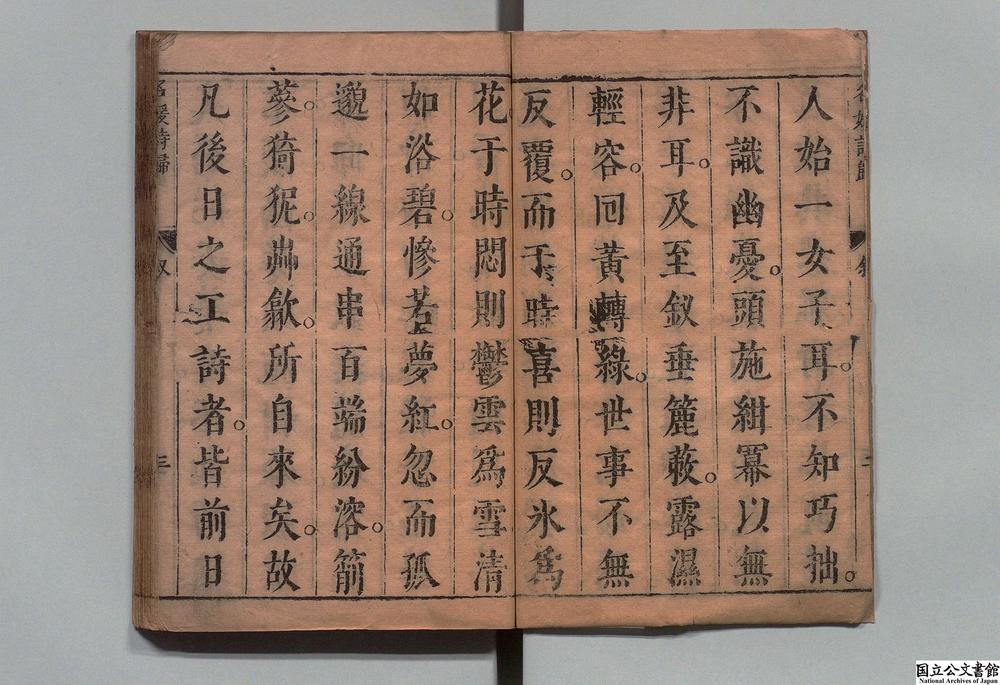 人始一女子耳。不知巧拙。
不識幽憂。頭施紺冪以無
非耳。及至釵垂簏蔌。露濕
輕容。回黃轉綠。世事不無
反覆。而于時喜則反氷為
花于時悶則鬱雲為雪清
如浴碧。慘若夢紅。忽而孤
邈一線通串百端紛溶。箾
蔘。猗狔。丱歙。所自來矣。故
凡後日之工詩者。皆前日
名媛詩歸
叙
三
国立公文書館
National Archives of Japan